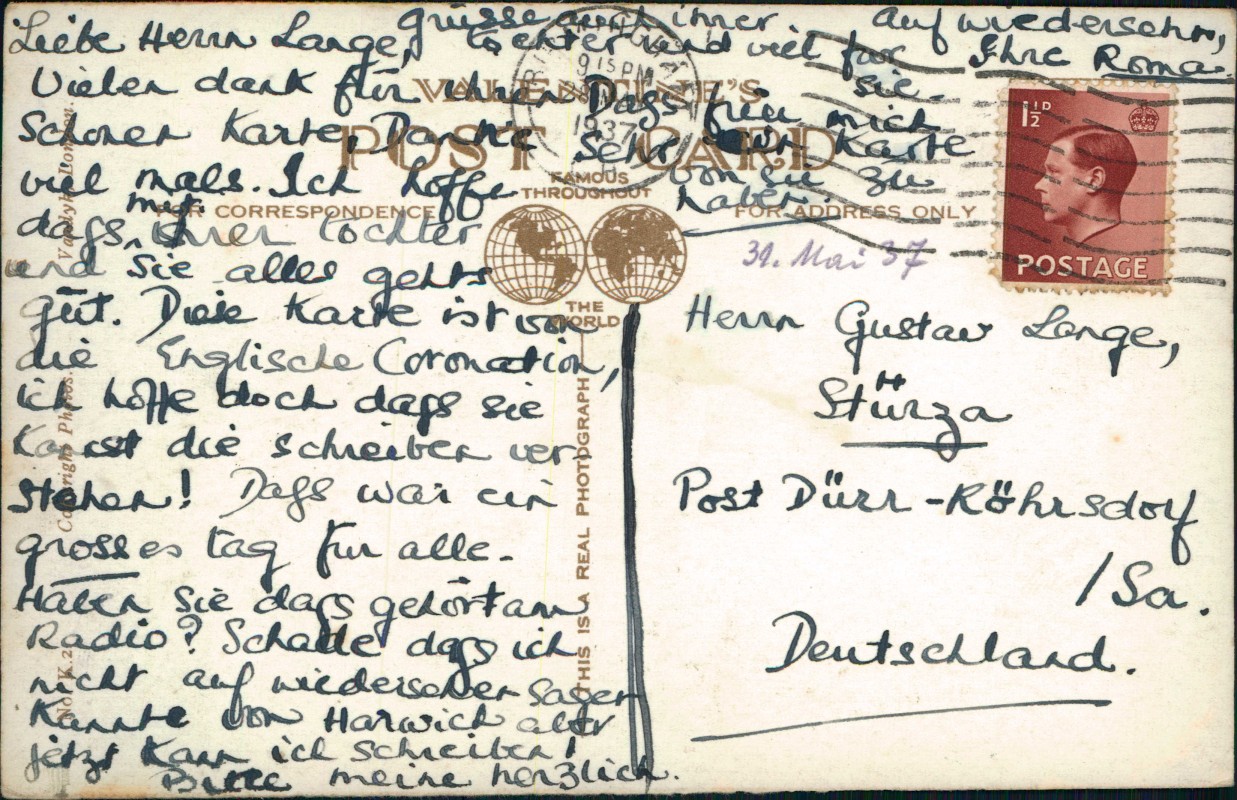 Liebe Herrn Lange,
Vielen dank für ihren
schonen Karte, Danke
viel mals. Ich hoffe
dass mit ihren tochter
und sie alles gehts
gūt. Diese Karte ist von
die Englische Coronation,
ich hoffe doch dass sie
Kannst die schreiben ver
stehen! Dass war ein
grosses tag für alle.
Haben sie dass gehört am
Radio? Schade dass ich
nicht auf wiedersehen sagen
Kannte von Harwich aber
jetzt Kann ich schreiben!
Bitte meine herzlich.
Grüsse auch ihrer
tochter und viel for
sie.
Dass für mich
sehr ein Karte
von sie zu
haben.
auf wiedersehn,
Ihre Roma.
VALENTINE'S
POST CARD
FAMOUS
THROUGHOUT
THE
WORLD
FOR CORRESPONDENCE
FOR ADDRESS ONLY
THIS IS A REAL PHOTOGRAPH
Copyright Photos.
Vandyk, London.
9 15 PM
1937
1½D
POSTAGE
31. Mai 37
Herrn Gustav Lange,
Stürza
Post Dürr-Röhrsdorf
/Sa.
Deutschland.